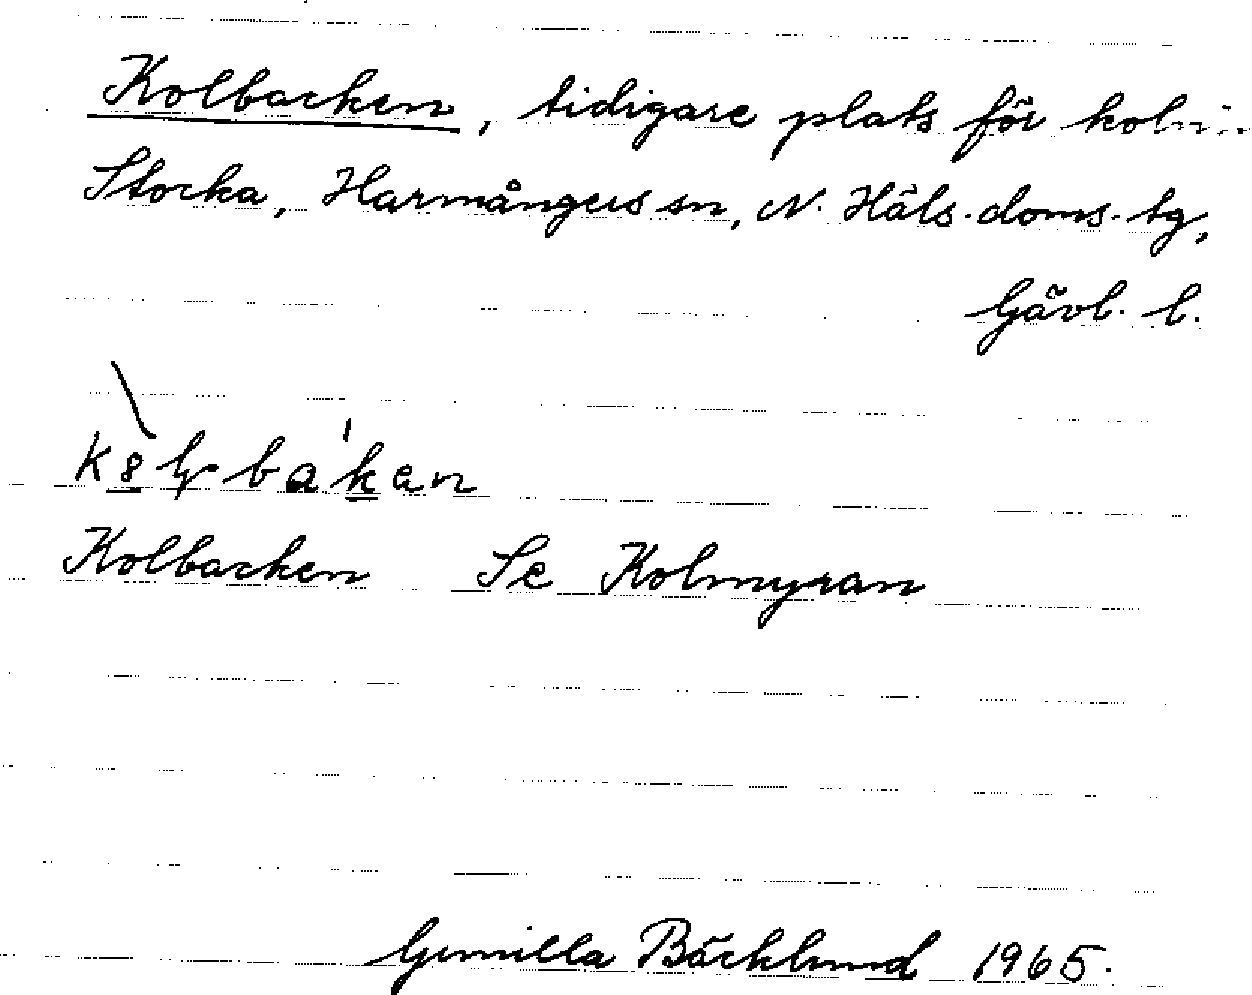 Kolbacken, tidigare plats för
Stocka, Harmångers sn, N. Häls. doms. tg,
Gävl. l.
Kolbacken Se Kolmyran
Gunilla Bäcklund 1965.